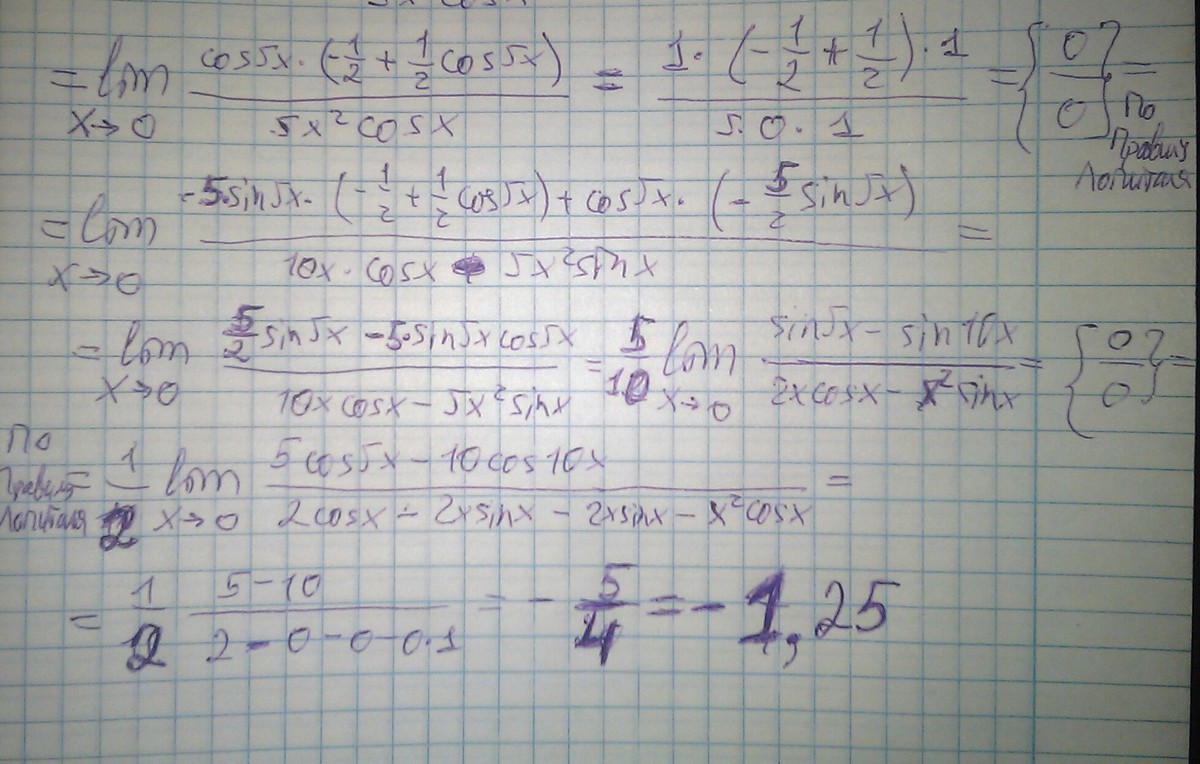 = lim x→0 cos5x · (-1/2 + 1/2 cos5x) / 5x² cosx = 1 · (-1/2 + 1/2) · 1 / 5 · 0 · 1 = {0/0} = По Правилу Лопиталя
= lim x→0 -5·sin5x · (-1/2 + 1/2 cos5x) + cos5x · (-5/2 sin5x) / 10x · cosx - 5x² sinx =
= lim x→0 5/2 sin5x - 5·sin5x cos5x / 10x cosx - 5x² sinx = 5/10 lim x→0 sin5x - sin10x / 2x cosx - x² sinx = {0/0} =
По Правилу Лопиталя = 1/2 lim x→0 5 cos5x - 10 cos10x / 2 cosx - 2x sinx - 2x sinx - x² cosx =
= 1/2 5 - 10 / 2 - 0 - 0 - 0·1 = - 5/4 = - 1,25